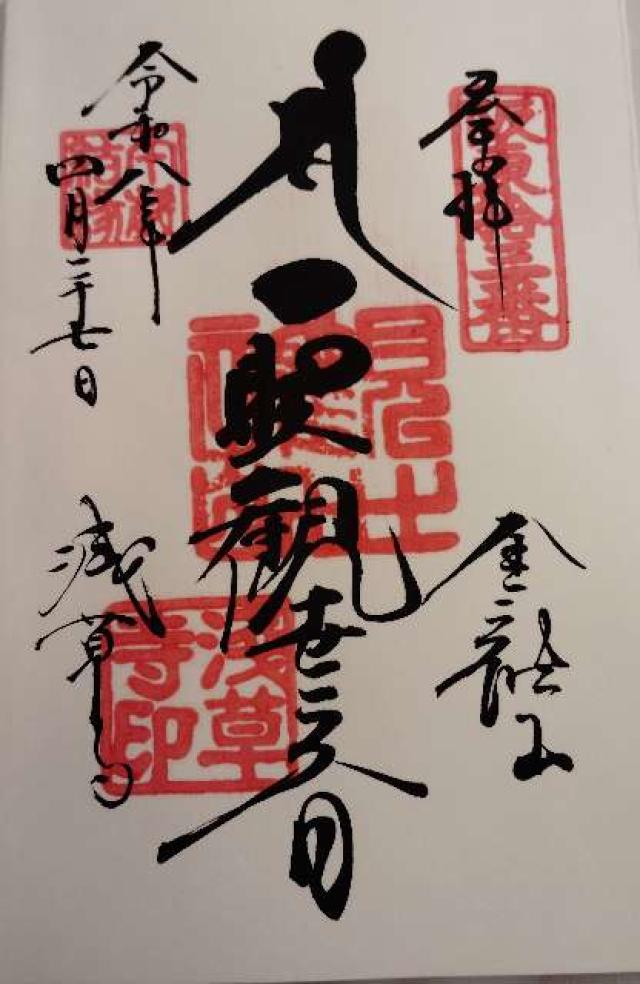 奉拝
坂東拾三番
金龍山
聖観世音
令和八年
四月二十七日
浅草寺
浅草寺印